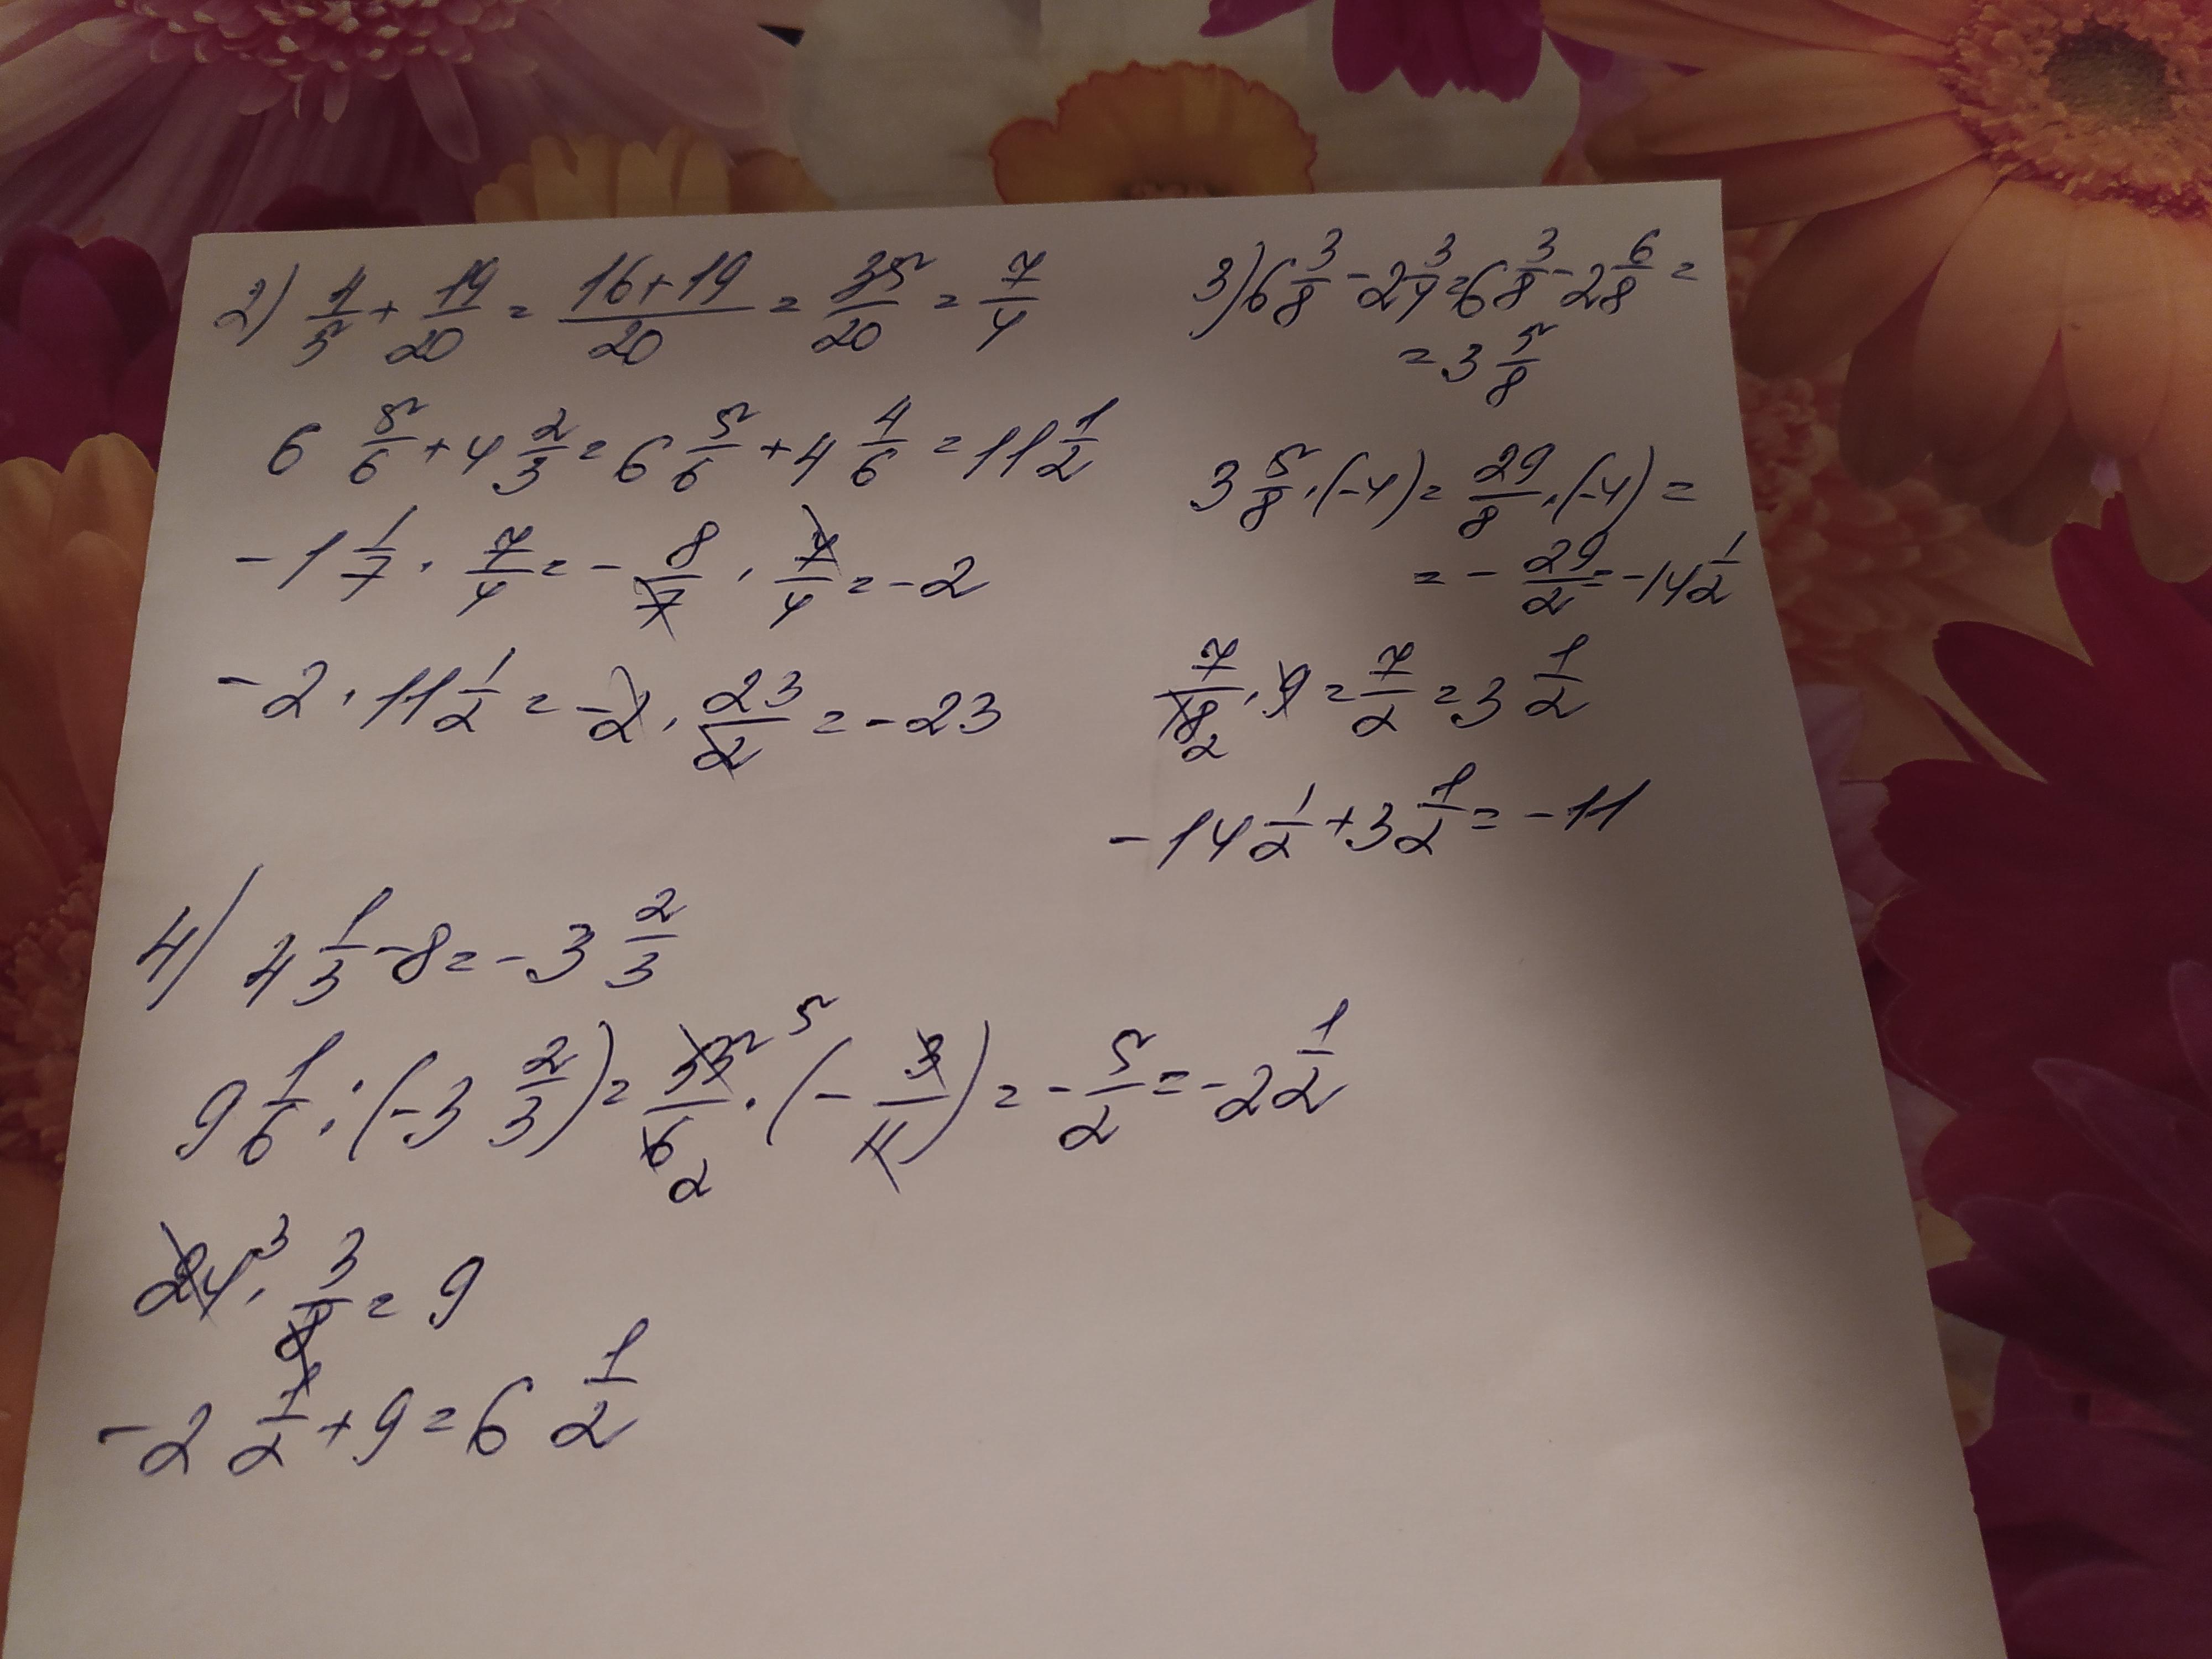 2) 4/5 + 19/20 = (16+19)/20 = 35/20 = 7/4
6 5/6 + 4 2/3 = 6 5/6 + 4 4/6 = 11 1/2
-1 1/7 · 7/4 = - 8/7 · 7/4 = -2
-2 · 11 1/2 = -2 · 23/2 = -23
3) 6 3/8 - 2 3/4 = 6 3/8 - 2 6/8 =
= 3 5/8
3 5/8 · (-4) = 29/8 · (-4) =
= - 29/2 = -14 1/2
7/18 2 · 9 = 7/2 = 3 1/2
-14 1/2 + 3 1/2 = -11
4) 4 1/3 - 8 = -3 2/3
9 1/6 : (-3 2/3) = 55 5/6 2 · (- 3/11) = - 5/2 = -2 1/2
24 3 · 3/8 = 9
-2 1/2 + 9 = 6 1/2